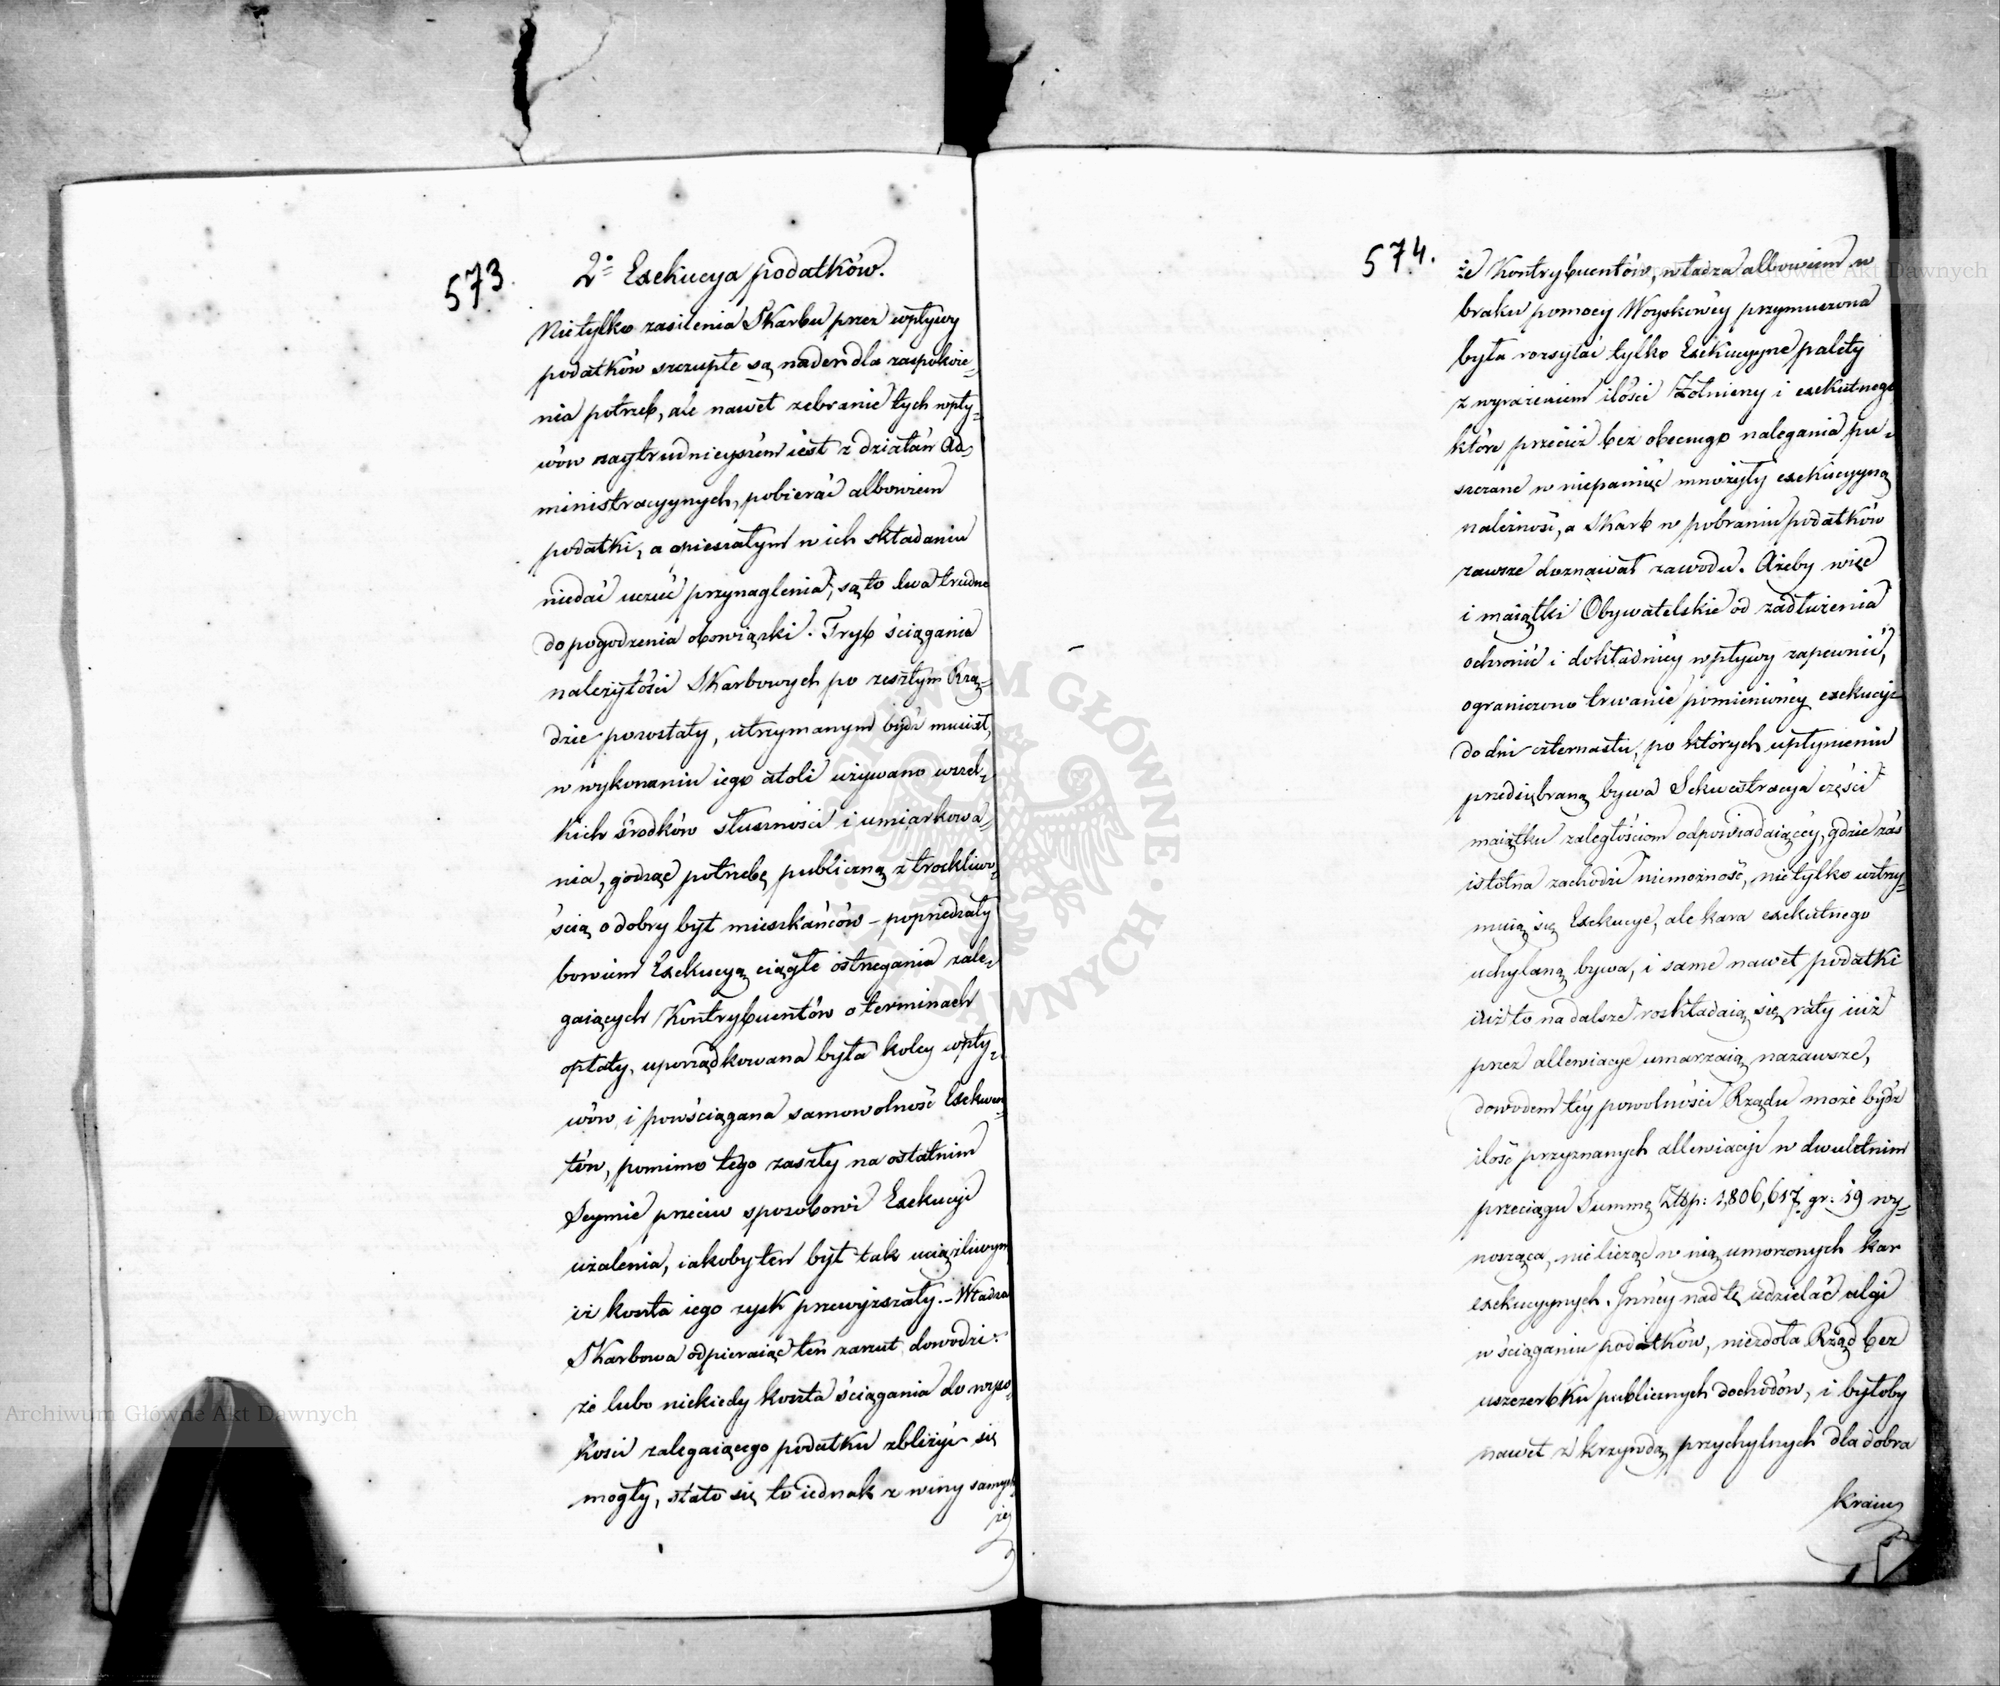 573.
2° Exekucya podatków.
Nietylko zasilenia Skarbu przez wpływy
podatków szczupłe są nader dla zaspokoie-
nia potrzeb, ale nawet zebranie tych wpły-
wów naytrudnieyszém iest z działań Ad-
ministracyynych, pobierać albowiem
podatki, a opieszałym w ich składaniu
niedać uczuć przynaglenia, są to dwa trudne
do pogodzenia obowiązki. Tryb ściągania
należytości Skarbowych po zeszłym Rzą-
dzie pozostały, utrzymanym bydź musiał,
w wykonaniu iego atoli używano wszel-
kich środków słuszności i umiarkowa-
nia, godząc potrzebę publiczną z troskliwo-
ścią o dobry byt mieszkańców – poprzedzały
bowiem Exekucyą ciągłe ostrzegania zale-
gaiących Kontrybuentów o terminach
opłaty, uporządkowana była koley wpły-
wów i powściągana samowolność Exekwen-
tów, pomimo tego zaszły na ostatnim
Seymie przeciw sposobowi Exekucyi
użalenia, iakoby ten był tak uciążliwym,
iż koszta iego zysk przewyższały. – Władza
Skarbowa odpieraiąc ten zarzut dowodzi:
że lubo niekiedy koszta ściągania do wyso-
kości zalegaiącego podatku zbliżyć się
mogły, stało się to iednak z winy samych
że
574.
że Kontrybuentów, władza albowiem w
braku pomocy Woyskowéy przymuszona
była rozsyłać tylko Exekucyyne palety
z wyrażeniem ilości Żołnierzy i exekutnego
które przecież bez obecnego nalegania pu-
szczane w niepamięć mnożyły exekucyyną
należność, a Skarb w pobraniu podatków
zawsze doznawał zawodu. Ażeby więc
i maiątki Obywatelskie od zadłużenia
ochronić i dokładniéy wpływy zapewnić,
ograniczono trwanie pomienionéy exekucyi
do dni czternastu, po których upłynieniu
przedsiębraną bywa Sekwestracya części
maiątku zaległościom odpowiadaiącéy, gdzie zaś
istotna zachodzi niemożność, nietylko wstrzy-
muią się Exekucye, ale kara exekutnego
uchylaną bywa, i same nawet podatki
iuż to na dalsze rozkładaią się raty iuż
przez allewiacye umarzaią nazawsze,
dowodem téy powolności Rządu może bydź
ilość przyznanych allewiacyi w dwuletnim
przeciągu Summę Złtp: 1,806,617 gr: 19 wy-
nosząca, nielicząc w nią umorzonych kar
exekucyynych. Innéy nad tę udzielać ulgi
w ściąganiu podatków, niezdoła Rząd bez
uszczerbku publicznych dochodów, i byłoby
nawet z krzywdą przychylnych dla dobra
kraiu
Archiwum Główne Akt Dawnych